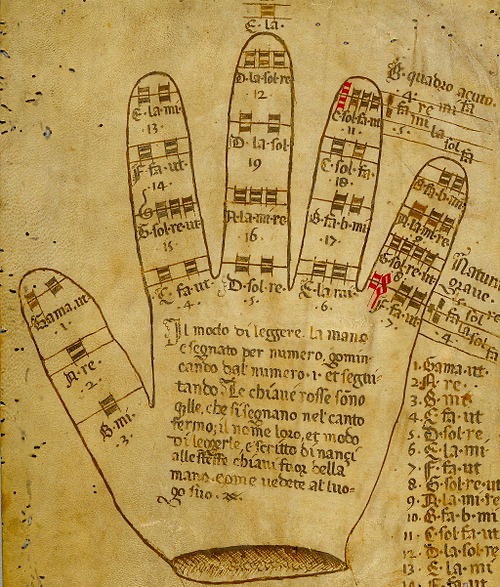 E·la·
D·la·sol·re
12
D·la·sol·
19
A·la·mi·re·
16
D·sol·re·
·5·
E·la·mi·
13
F·fa·ut
·14·
G·sol·re·ut
15
C·fa·ut
·4·
C·sol·fa·ut
11
C·sol·fa·
18
B·fa·b·mi
·17·
E·la·mi·
·6·
B·fa·b·mi
A·la·mi·re
G·sol·re·ut
8
F·fa·ut
·7·
Gama·ut
·1·
A·re·
·2·
B·mi·
·3·
B· quadro acuto.
·4·
fa re mi fa
·5·
mi la sol fa
Natura
grave
Il modo di leggere la mano
e segnato per numero, comin
cando dal numero ·1· et segui
tando. Le chiave rosse sono
qlle, che si segnano nel canto
fermo; il nome loro, et modo
di leggerle, e scritto di nanci
alle stesse chiavi fuor della
mano come vedete al luo
go suo
1·Gama·ut·
2·A·re·
3·B·mi
4·C·fa·ut
5·D·sol·re·
6·E·la·mi·
7·F·fa·ut
8·G·sol·re·ut
9·A·la·mi·re
10·B·fa·b·mi
11·C·sol·fa·ut
12·D·la·sol·re
13·E·la·mi
14·F·fa·ut